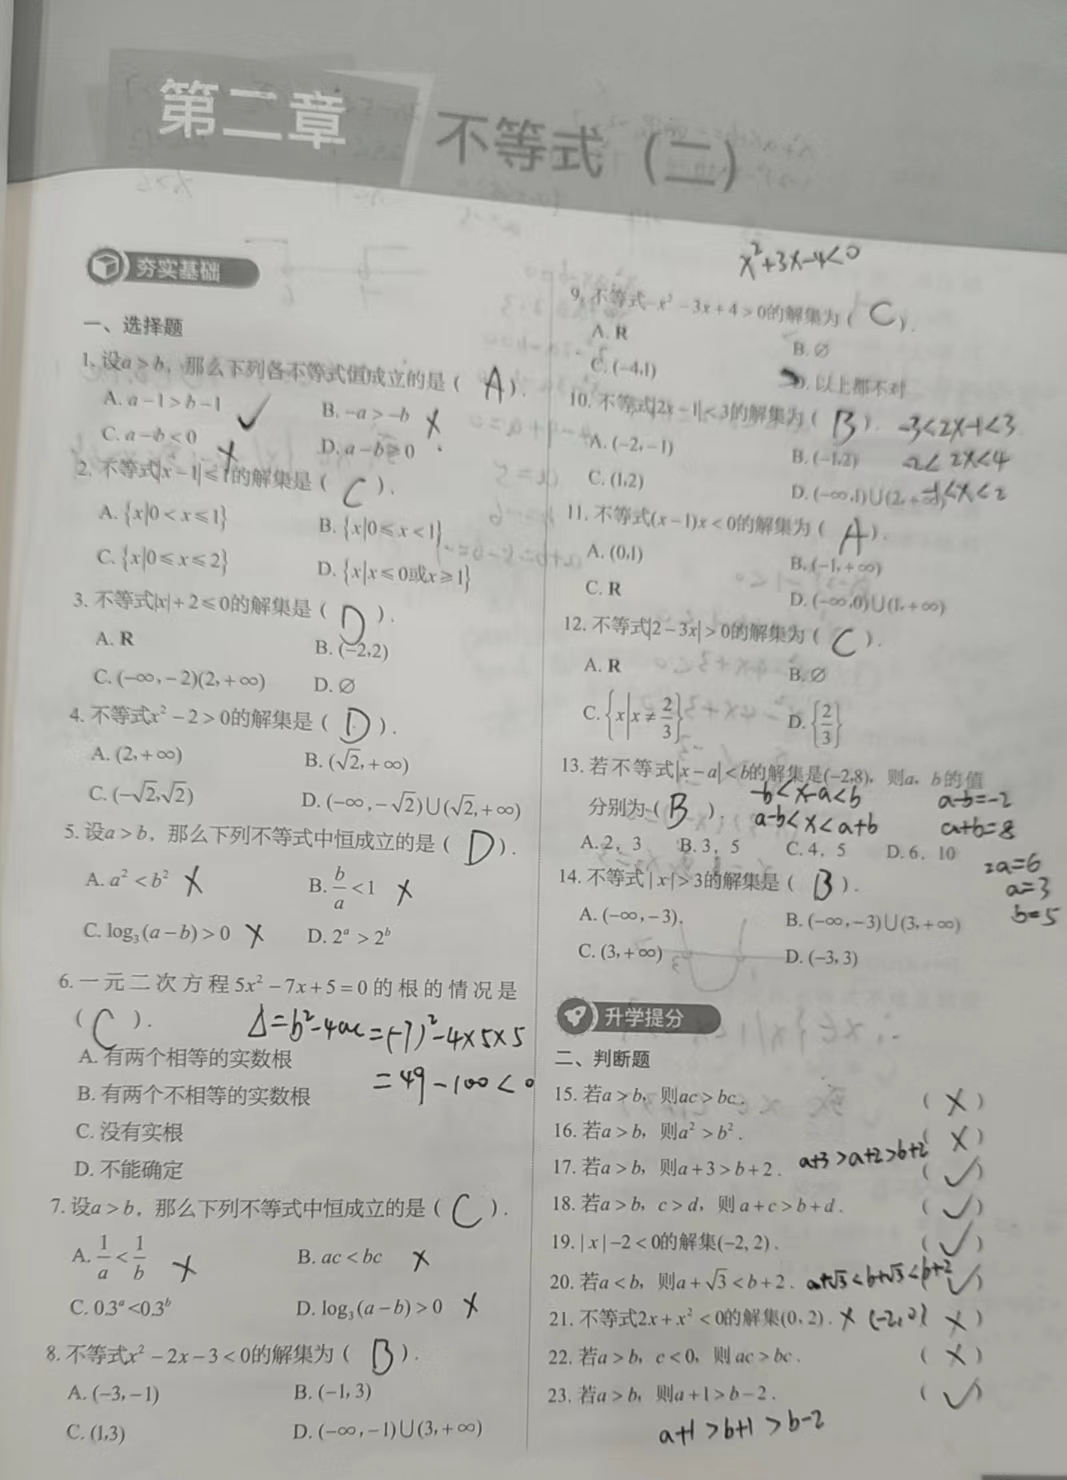 第二章 不等式（二）
夯实基础
一、选择题
1. 设a>b，那么下列各不等式恒成立的是（ A ）.
A. a-1>b-1 ✓ B. -a>-b ×
C. a-b<0 × D. a-b≥0
2. 不等式|x-1|≤1的解集是（ C ）.
A. {x|0<x≤1} B. {x|0≤x<1}
C. {x|0≤x≤2} D. {x|x≤0或x≥1}
3. 不等式|x|+2≤0的解集是（ D ）.
A. R B. (-2,2)
C. (-∞,-2)(2,+∞) D. ∅
4. 不等式x²-2>0的解集是（ D ）.
A. (2,+∞) B. (√2,+∞)
C. (-√2,√2) D. (-∞,-√2)∪(√2,+∞)
5. 设a>b，那么下列不等式中恒成立的是（ D ）.
A. a²<b² × B. b/a<1 ×
C. log₃(a-b)>0 × D. 2ᵃ>2ᵇ
6. 一元二次方程5x²-7x+5=0的根的情况是
（ C ）. Δ=b²-4ac=(-7)²-4×5×5
A. 有两个相等的实数根 =49-100<0
B. 有两个不相等的实数根
C. 没有实根
D. 不能确定
7. 设a>b，那么下列不等式中恒成立的是（ C ）.
A. 1/a<1/b × B. ac<bc ×
C. 0.3ᵃ<0.3ᵇ D. log₃(a-b)>0 ×
8. 不等式x²-2x-3<0的解集为（ B ）.
A. (-3,-1) B. (-1,3)
C. (1,3) D. (-∞,-1)∪(3,+∞)
x²+3x-4<0
9. 不等式-x²-3x+4>0的解集为（ C ）.
A. R B. ∅
C. (-4,1) D. 以上都不对
10. 不等式|2x-1|<3的解集为（ B ）. -3<2x-1<3
A. (-2,-1) B. (-1,2) -2<2x<4
C. (1,2) D. (-∞,1)∪(2,+∞) -1<x<2
11. 不等式(x-1)x<0的解集为（ A ）.
A. (0,1) B. (-1,+∞)
C. R D. (-∞,0)∪(1,+∞)
12. 不等式|2-3x|>0的解集为（ C ）.
A. R B. ∅
C. {x|x≠2/3} D. {2/3}
13. 若不等式|x-a|<b的解集是(-2,8)，则a，b的值
分别为（ B ）. -b<x-a<b a-b=-2
a-b<x<a+b a+b=8
A. 2，3 B. 3，5 C. 4，5 D. 6，10
2a=6
a=3
b=5
14. 不等式|x|>3的解集是（ B ）.
A. (-∞,-3). B. (-∞,-3)∪(3,+∞)
C. (3,+∞) D. (-3,3)
升学提分
二、判断题
15. 若a>b，则ac>bc. （ × ）
16. 若a>b，则a²>b². （ × ）
17. 若a>b，则a+3>b+2. a+3>a+2>b+2 （ ✓ ）
18. 若a>b，c>d，则a+c>b+d. （ ✓ ）
19. |x|-2<0的解集(-2,2). （ ✓ ）
20. 若a<b，则a+√3<b+2. a+√3<b+√3<b+2 （ ✓ ）
21. 不等式2x+x²<0的解集(0,2). × (-2,0) （ × ）
22. 若a>b，c<0，则ac>bc. （ × ）
23. 若a>b，则a+1>b-2. （ ✓ ）
a+1>b+1>b-2